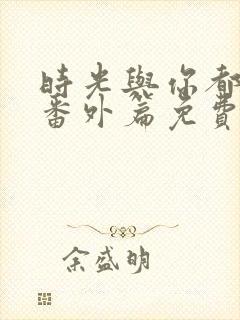 時光與你都
番外篇免費
余盛明